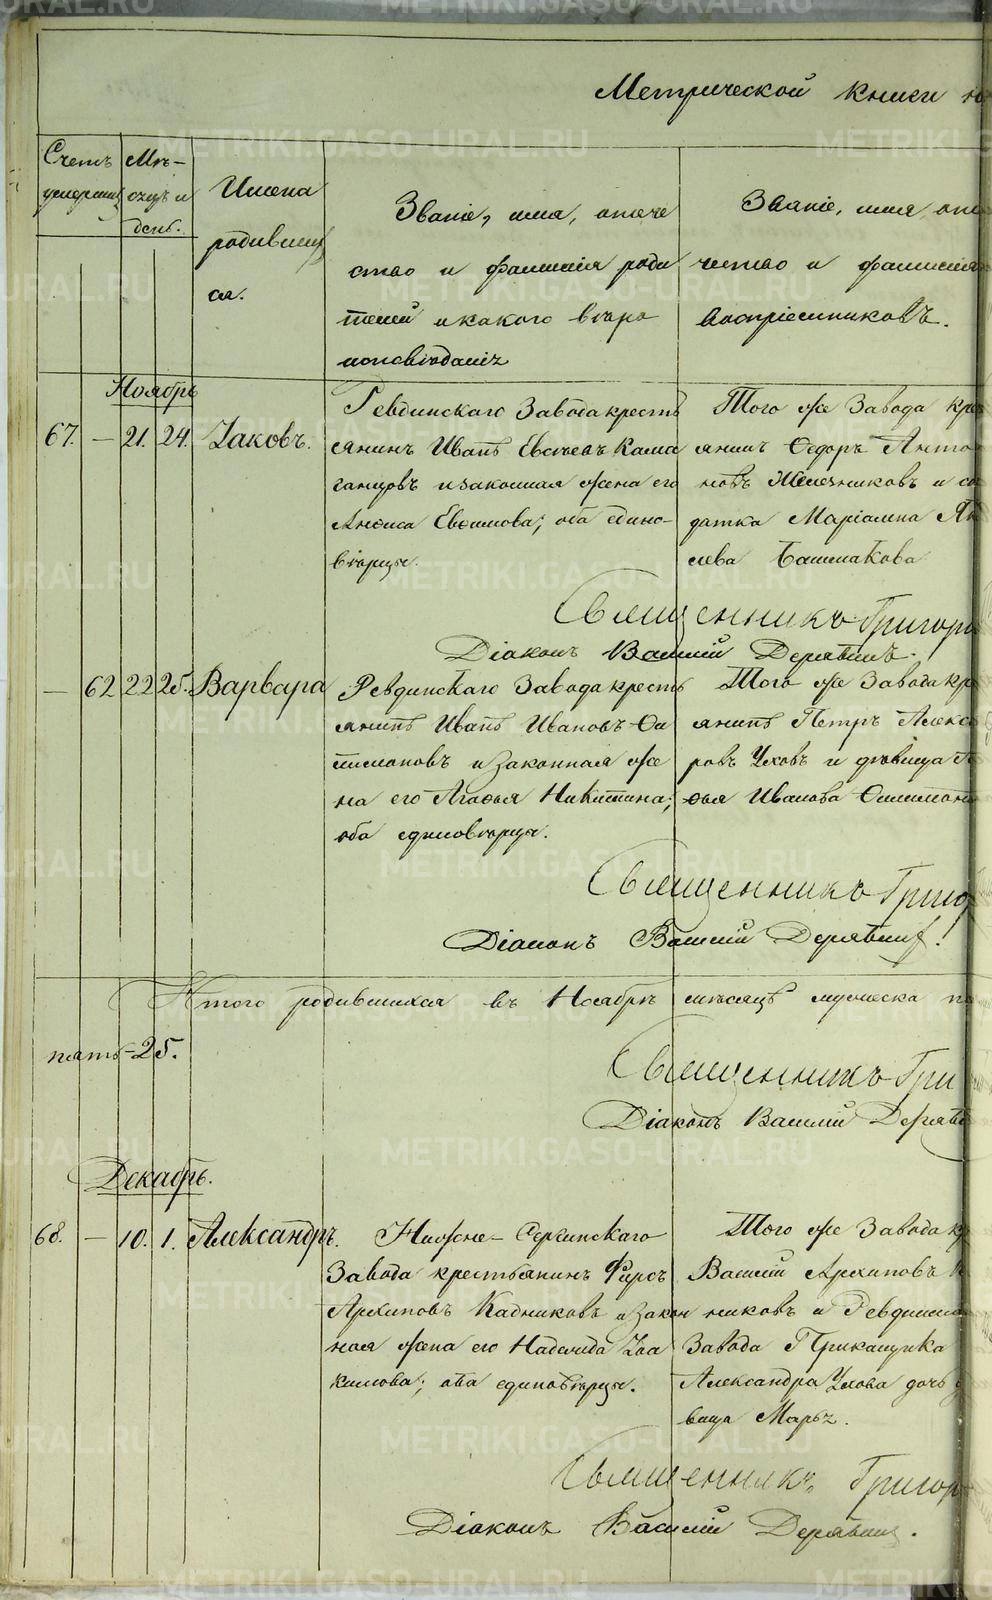 Метрической книги
Счетъ
Мѣ-
сяцъ и
день.
Имена
родивших
ся.
Званіе, имя, отече
ство и фамилія роди
телей и какого вѣро
исповѣданія
Званіе, имя, оте
чество и фамилія
воспріемниковъ.
Ноябрь
67. — 21. 24. Іаковъ.
Ревдинскаго Завода кресть
янинъ Иванъ Евсѣевъ
и законная жена его
Анѳиса Евѳимова; оба едино-
вѣрцы.
Того же Завода кре
янинъ Ѳедоръ Анто
новъ и со
датка Маріамна Як
лева Башмакова
Священникъ Григор
Діаконъ Василій Дерябинъ.
— 62 22 25. Варвара
Ревдинскаго Завода кресть
янинъ Иванъ Ивановъ Фи
лимоновъ и законная же
на его Агаѳья Никитина;
оба единовѣрцы.
Того же Завода кр
янинъ Петръ Алекс
ровъ Уховъ и дѣвица А
ѳья Иванова Филимон
Священникъ Григо
Діаконъ Василій Дерябинъ.
Итого родившихся въ Ноябрѣ мѣсяцѣ мужеска по
пять-25.
Священникъ Гри
Діаконъ Василій Деряб
Декабрь.
68. — 10. 1. Александръ.
Нижне-Сергинскаго
Завода крестьянинъ Фирсъ
Архиповъ Кадниковъ и закон
ная жена его Надежда Іоа
кимова; оба единовѣрцы.
Того же Завода кр
Василій Архиповъ К
никовъ и Ревдинска
Завода Прикащика
Александра Ухова дочь д
вица Марья.
Священникъ Григор
Діаконъ Василій Дерябинъ.
METRIKI.GASO-URAL.RU